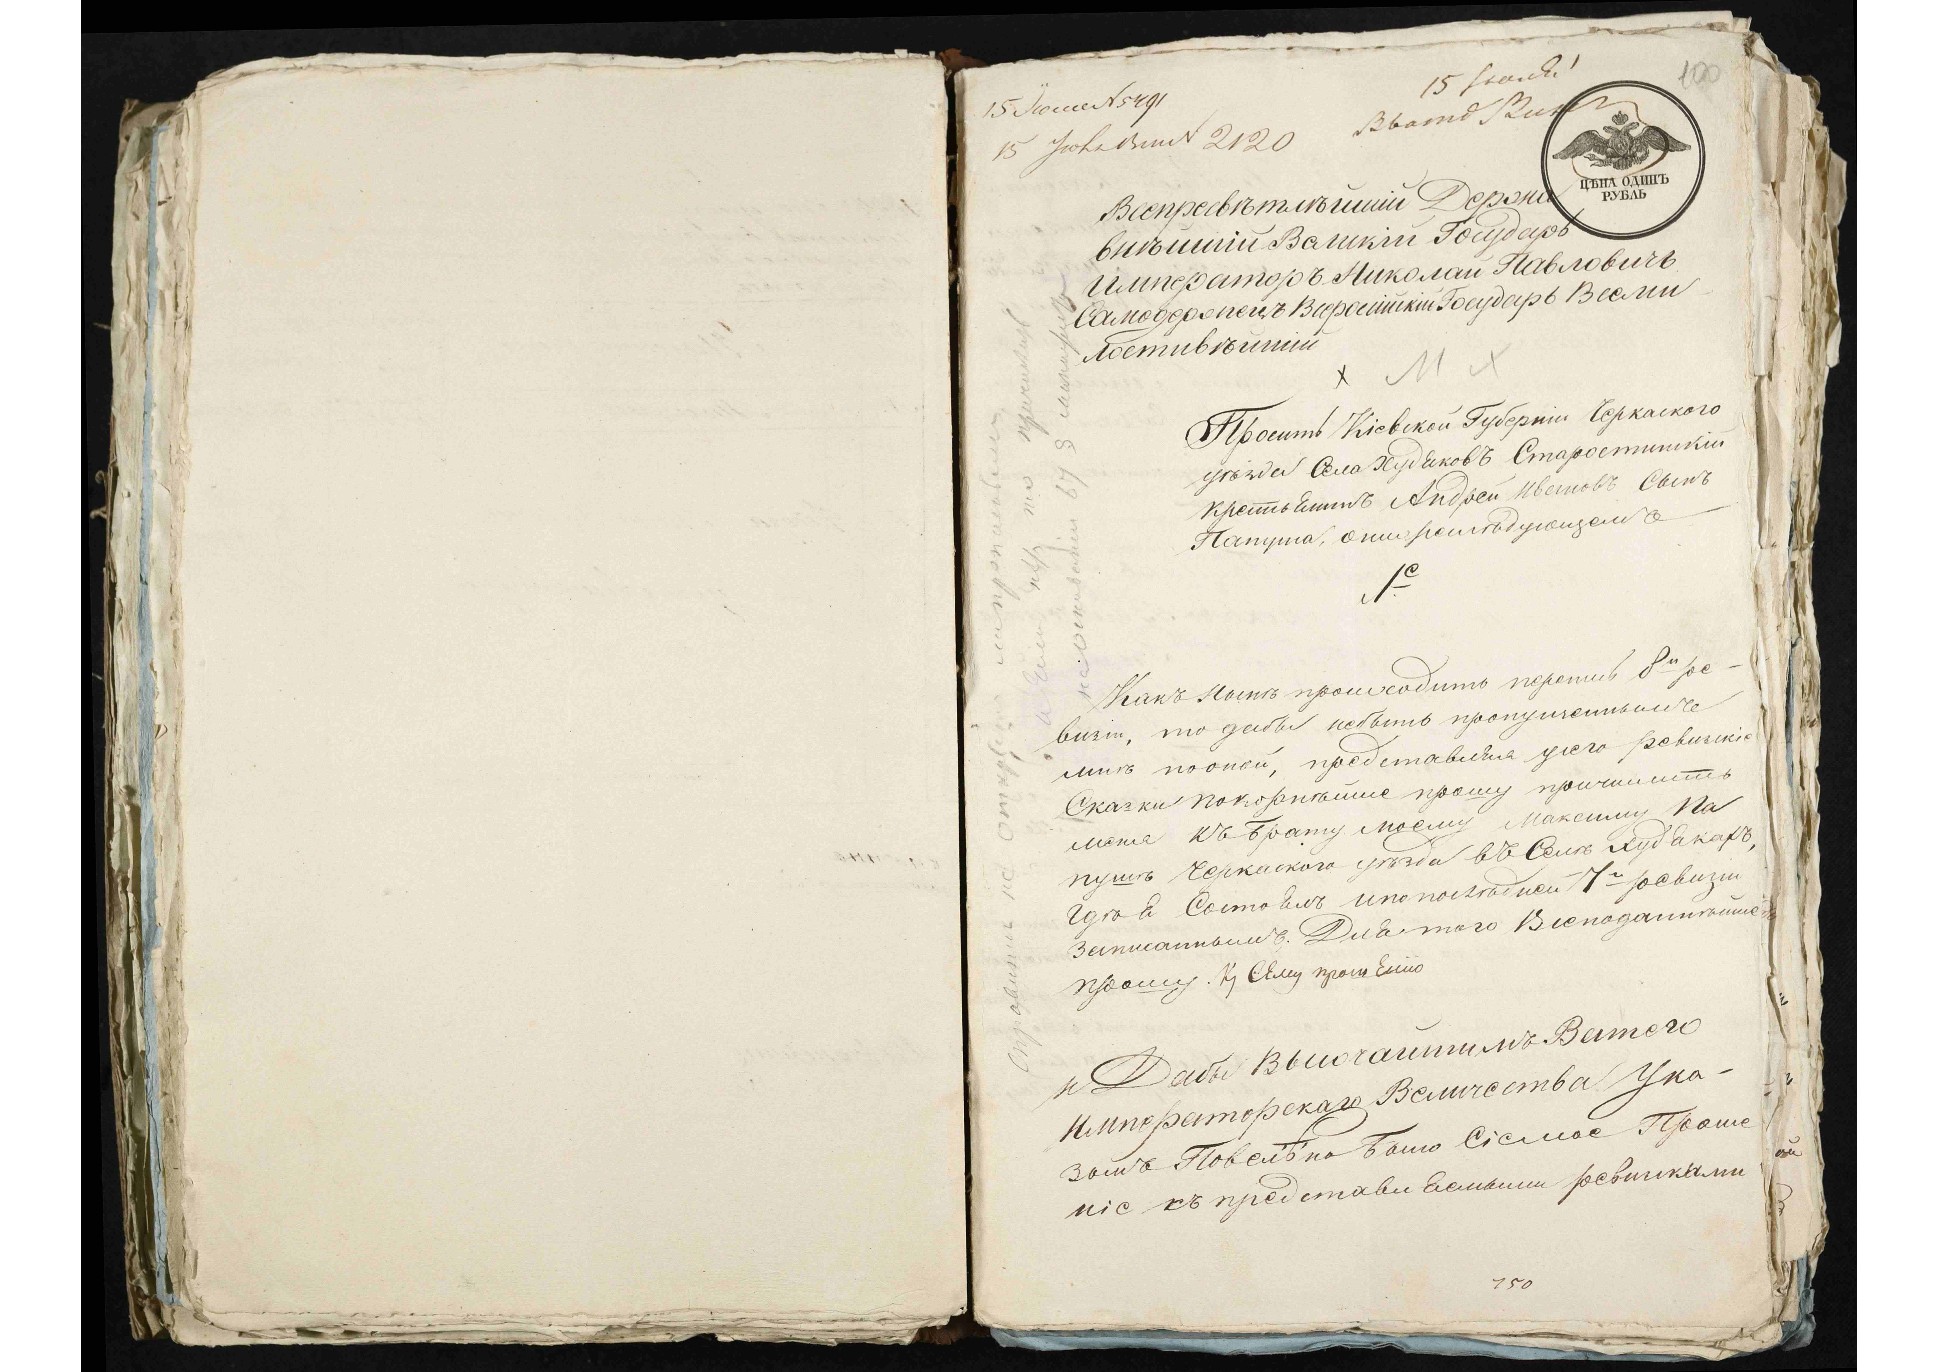 100
15 Июля №5491
15 Июля
15 2120
ЦѢНА ОДИНЪ
РУБЛЬ
Всепресвѣтлѣйшій Держа
внѣйшій Великій Государь
Императоръ Николай Павловичь
Самодержецъ Всеросійскій Государь Всеми
лостивѣйшій
х М х
Проситъ Кіевской Губерніи Черкаского
уѣзда Села Худяковъ Старостинскій
Крестьянинъ Андрей Ивановъ Сынъ
Папуша, о нижеслѣдующемъ
1е
Какъ нынѣ происходитъ перепись 8й ре-
визіи, то дабы небыть пропущеннымъ
мнѣ по оной, представляя у сего ревизскіе
Сказки покорнѣйше прошу причислить
меня къ Брату моему Максиму Па
пушѣ Черкаского уѣзда въ Селѣ Худякахъ,
гдѣ я Состоялъ и по послѣдней 7й ревизіи
записаннымъ. Для того Всеподданнѣйше
прошу. К Сему прошенію
и Дабы Высочайшимъ Вашего
Императорскаго Величества Ука-
зомъ Повелѣно было Сіе мое Проше
ніе къ представляемыми ревизскими
150
Справиться на откуда